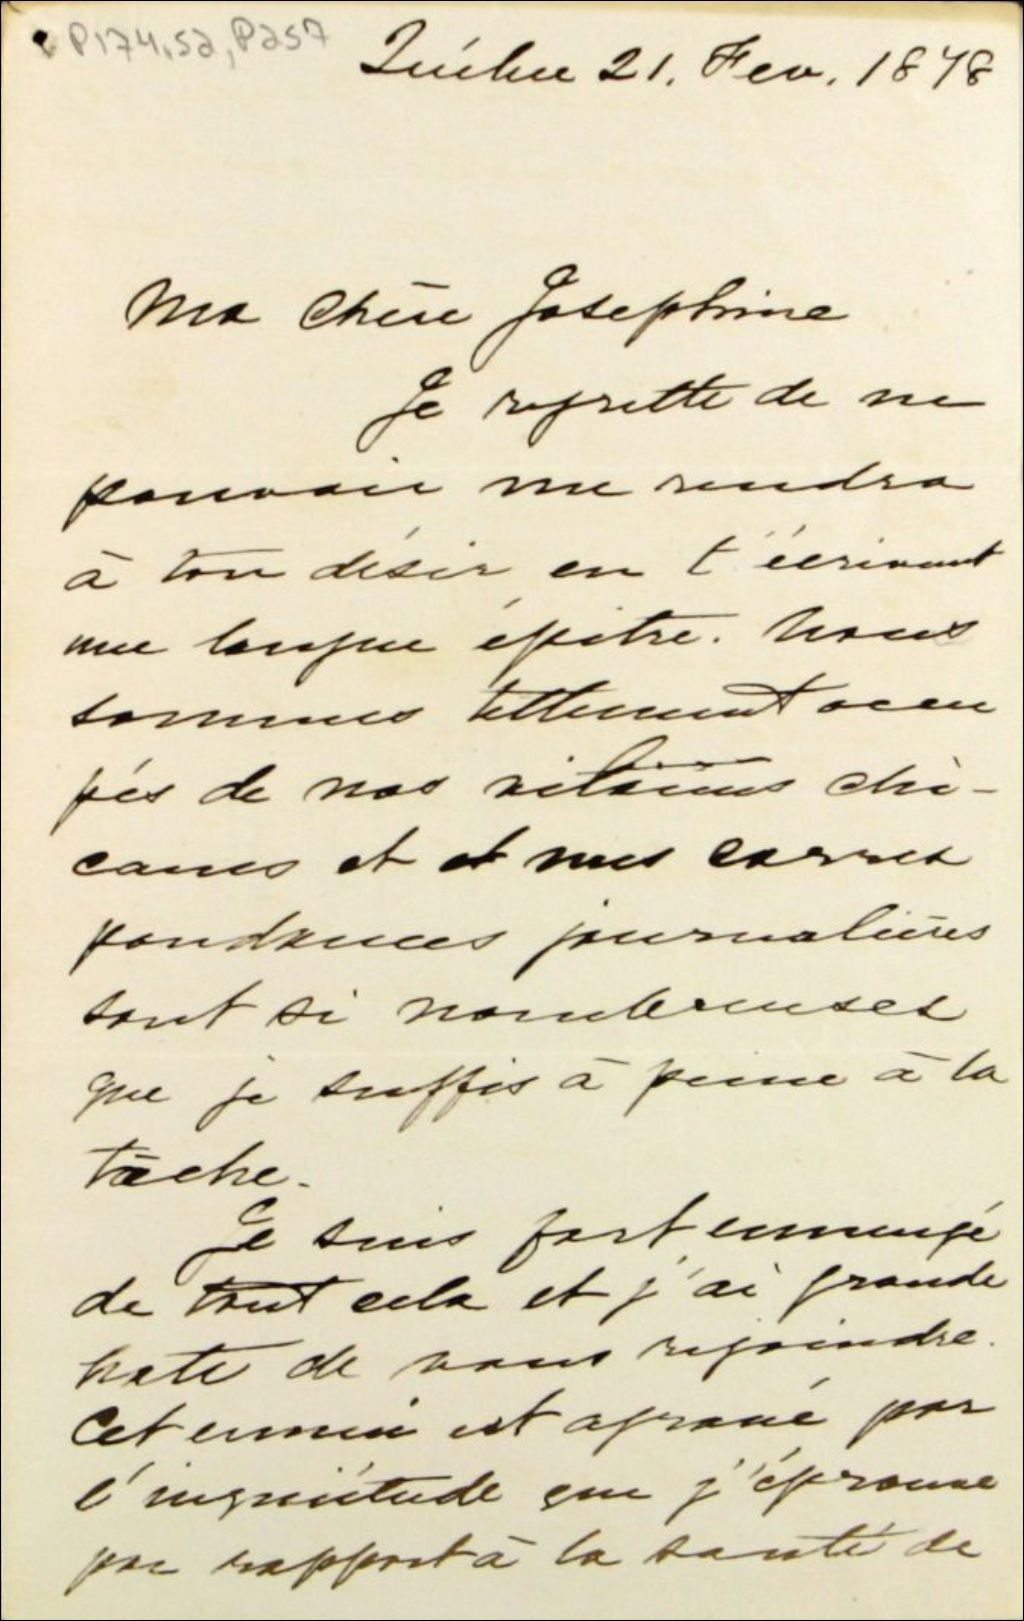 P174,S2,P257
Québec 21. Fev. 1878
Ma chère Josephine
Je regrette de ne
pouvoir me rendre
à ton désir en t'écrivant
une longue épitre. Nous
sommes tellement occu
pés de nos vilaines chi-
canes et et mes corres
pondances journalières
sont si nombreuses
que je suffis à peine à la
tâche.
Je suis fort ennuyé
de tout cela et j'ai grande
hate de vous rejoindre.
Cet ennui est agravé par
l'inquiétude que j'éprouve
par rapport à la santé de